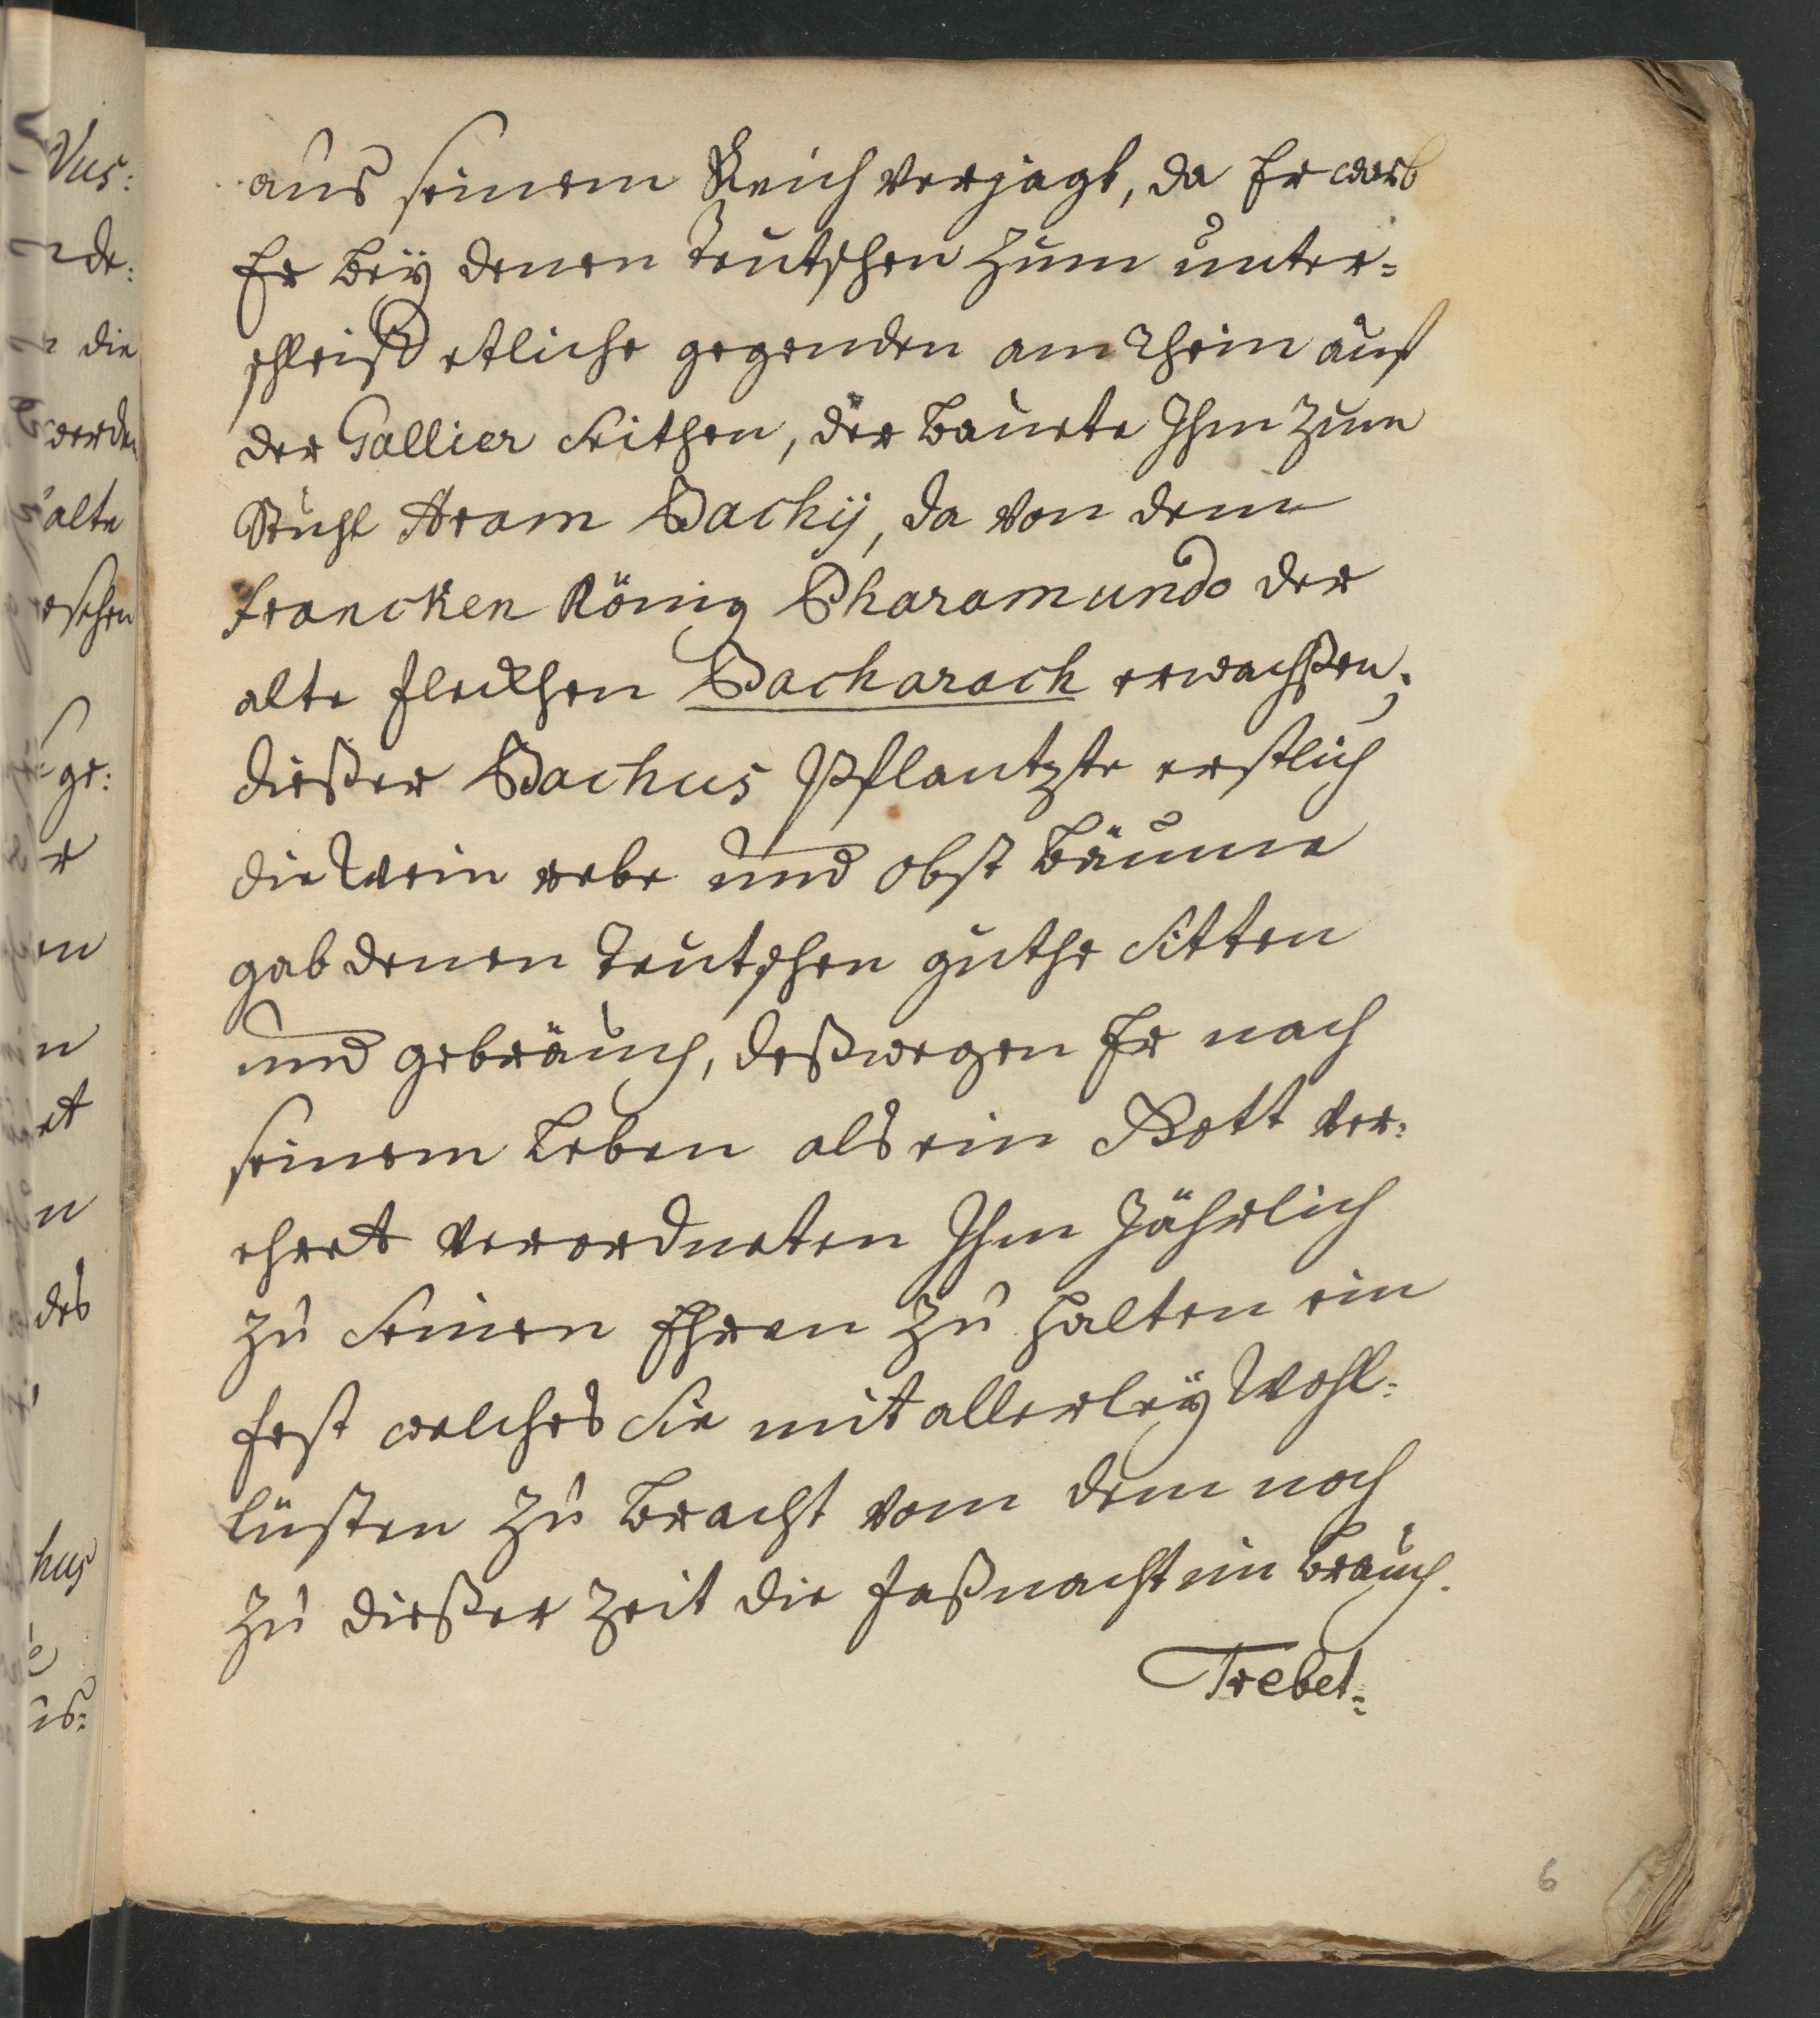 Vus:
de:
die
werden
alte
eschen
ge:
r
en
n
et
n
des
hus
us:
aus seinem Reich verjagt, da Er warb
Er beÿ denen Teutschen zum unter=
schleiff etliche gegenden am Rhein auf
der Gallier Seithen, der bauete Ihm zum
Stuhl Aram Bachÿ, da von dem
Francken König Pharamundo der
alte fleckhen Bacharach erwachßen,
dießer Bachus Pflantzte erstlich
die Wein rebe und obst Bäume
gab denen Teutschen guthe Sitten
und gebräuch, deßwegen Er nach
seinem Leben als ein Gott ver:
ehret verordneten Ihm Jährlich
zu Seinen Ehren zu halten ein
fest welches Sie mit allerleÿ Wohl:
lüsten zu bracht vom dem noch
zu dießer Zeit die Faßnacht im brauch.
Trebet=
6